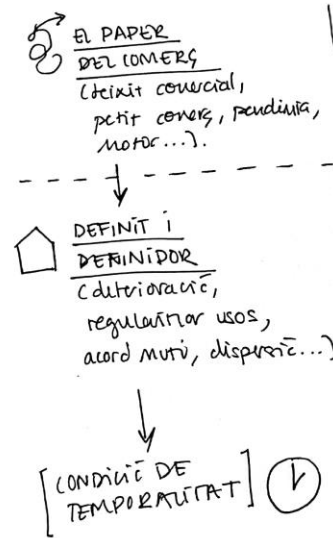 EL PAPER
DEL COMERÇ
(teixit comercial,
petit comerç, pandèmia,
motor...).
DEFINIT i
DEFINIDOR
(deterioració,
usos,
acord mutu, dispersió...)
[CONDICIÓ DE
TEMPORALITAT]